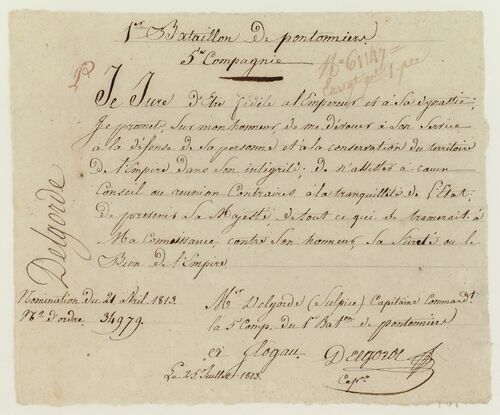 1er Bataillon de pontonniers
5me Compagnie
No 61147
1 pce
Je Jure d'Etre fidèle a l'Empereur et à Sa dynastie;
Je promet, Sur mon honneur, de me dévouer à Son Service
à la défense de Sa personne et à la conservation du territoire
de l'Empire dans Son intégrité; de n'assister à aucun
Conseil ou réunion Contraires à la tranquillité de l'Etat,
de prévenir Sa Majesté, de tout ce qui Se tramerait à
Ma Connaissance, contre Son honneur, Sa Sureté ou le
Bien de l'Empire
Delgorde
Nomination du 21 Avril 1813.
No d'ordre 34979.
Mr Delgorde (Sulpice) Capitaine Commandt
la 5e Comp. du 1er Baton de pontonniers
Glogau
Le 25 Juillet 1813.
Delgorde
Capne